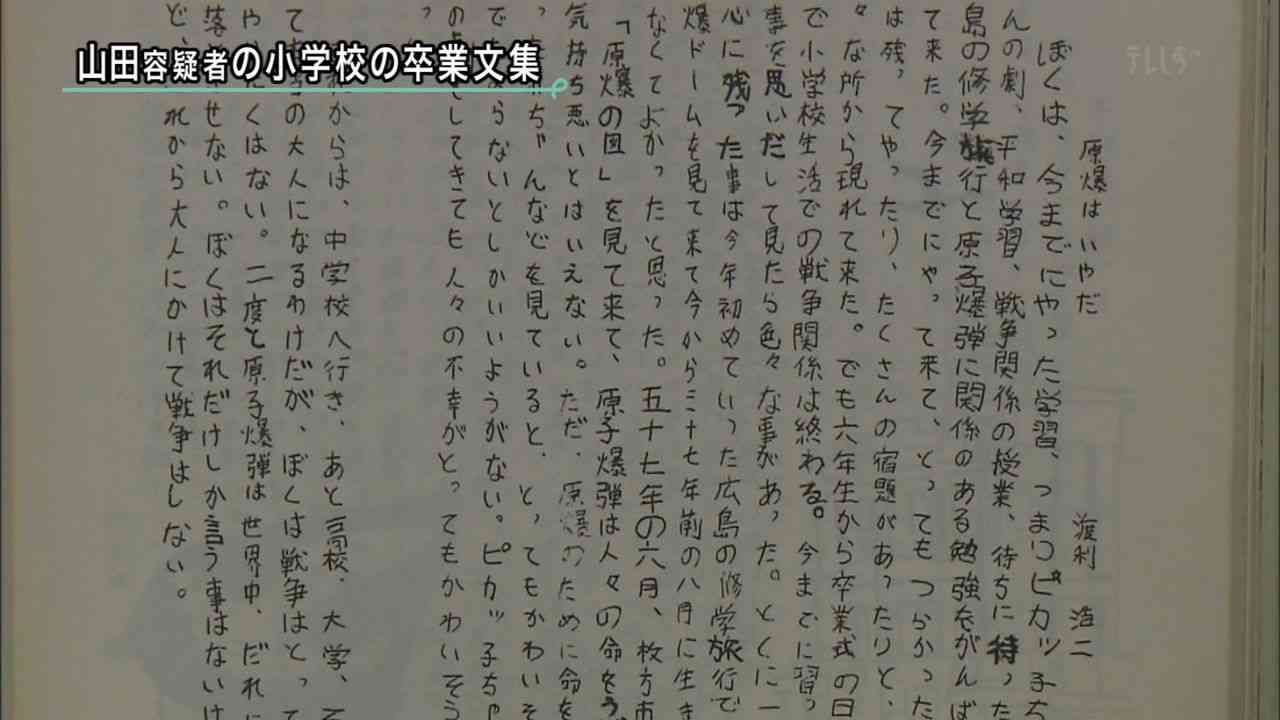 山田容疑者の小学校の卒業文集
テレしょう
原爆はいやだ
渡利 浩二
ぼくは、今までにやった学習、つまりピカッ子ち
んの劇、平和学習、戦争関係の授業、待ちに待った
島の修学旅行と原子爆弾に関係のある勉強をがんば
て来た。今までにやって来て、とってもつらかった
は残ってやったり、たくさんの宿題があったりと、
々な所から現れて来た。でも六年生から卒業式の日
で小学校生活での戦争関係は終わる。今までに習っ
事を思いだして見たら色々な事があった。とくに一
心に残った事は今年初めていった広島の修学旅行で
爆ドームを見て来て今から三十七年前の八月に生き
なくてよかったと思った。五十七年の六月、枚方市
「原爆の図」を見て来て、原子爆弾は人々の命をう
気持ち悪いとはいえない。ただ、原爆のために命を
ちゃんなどを見ていると、とってもかわいそ
らないとしかいいようがない。ピカッ子ちゃ
してきても人々の不幸がとってもかわいそう
っ
からは、中学校へ行き、あと高校、大学、
の大人になるわけだが、ぼくは戦争はとって
くはない。二度と原子爆弾は世界中、だれに
落 せない。ぼくはそれだけしか言う事はないけ
ど、 れから大人にかけて戦争はしない。